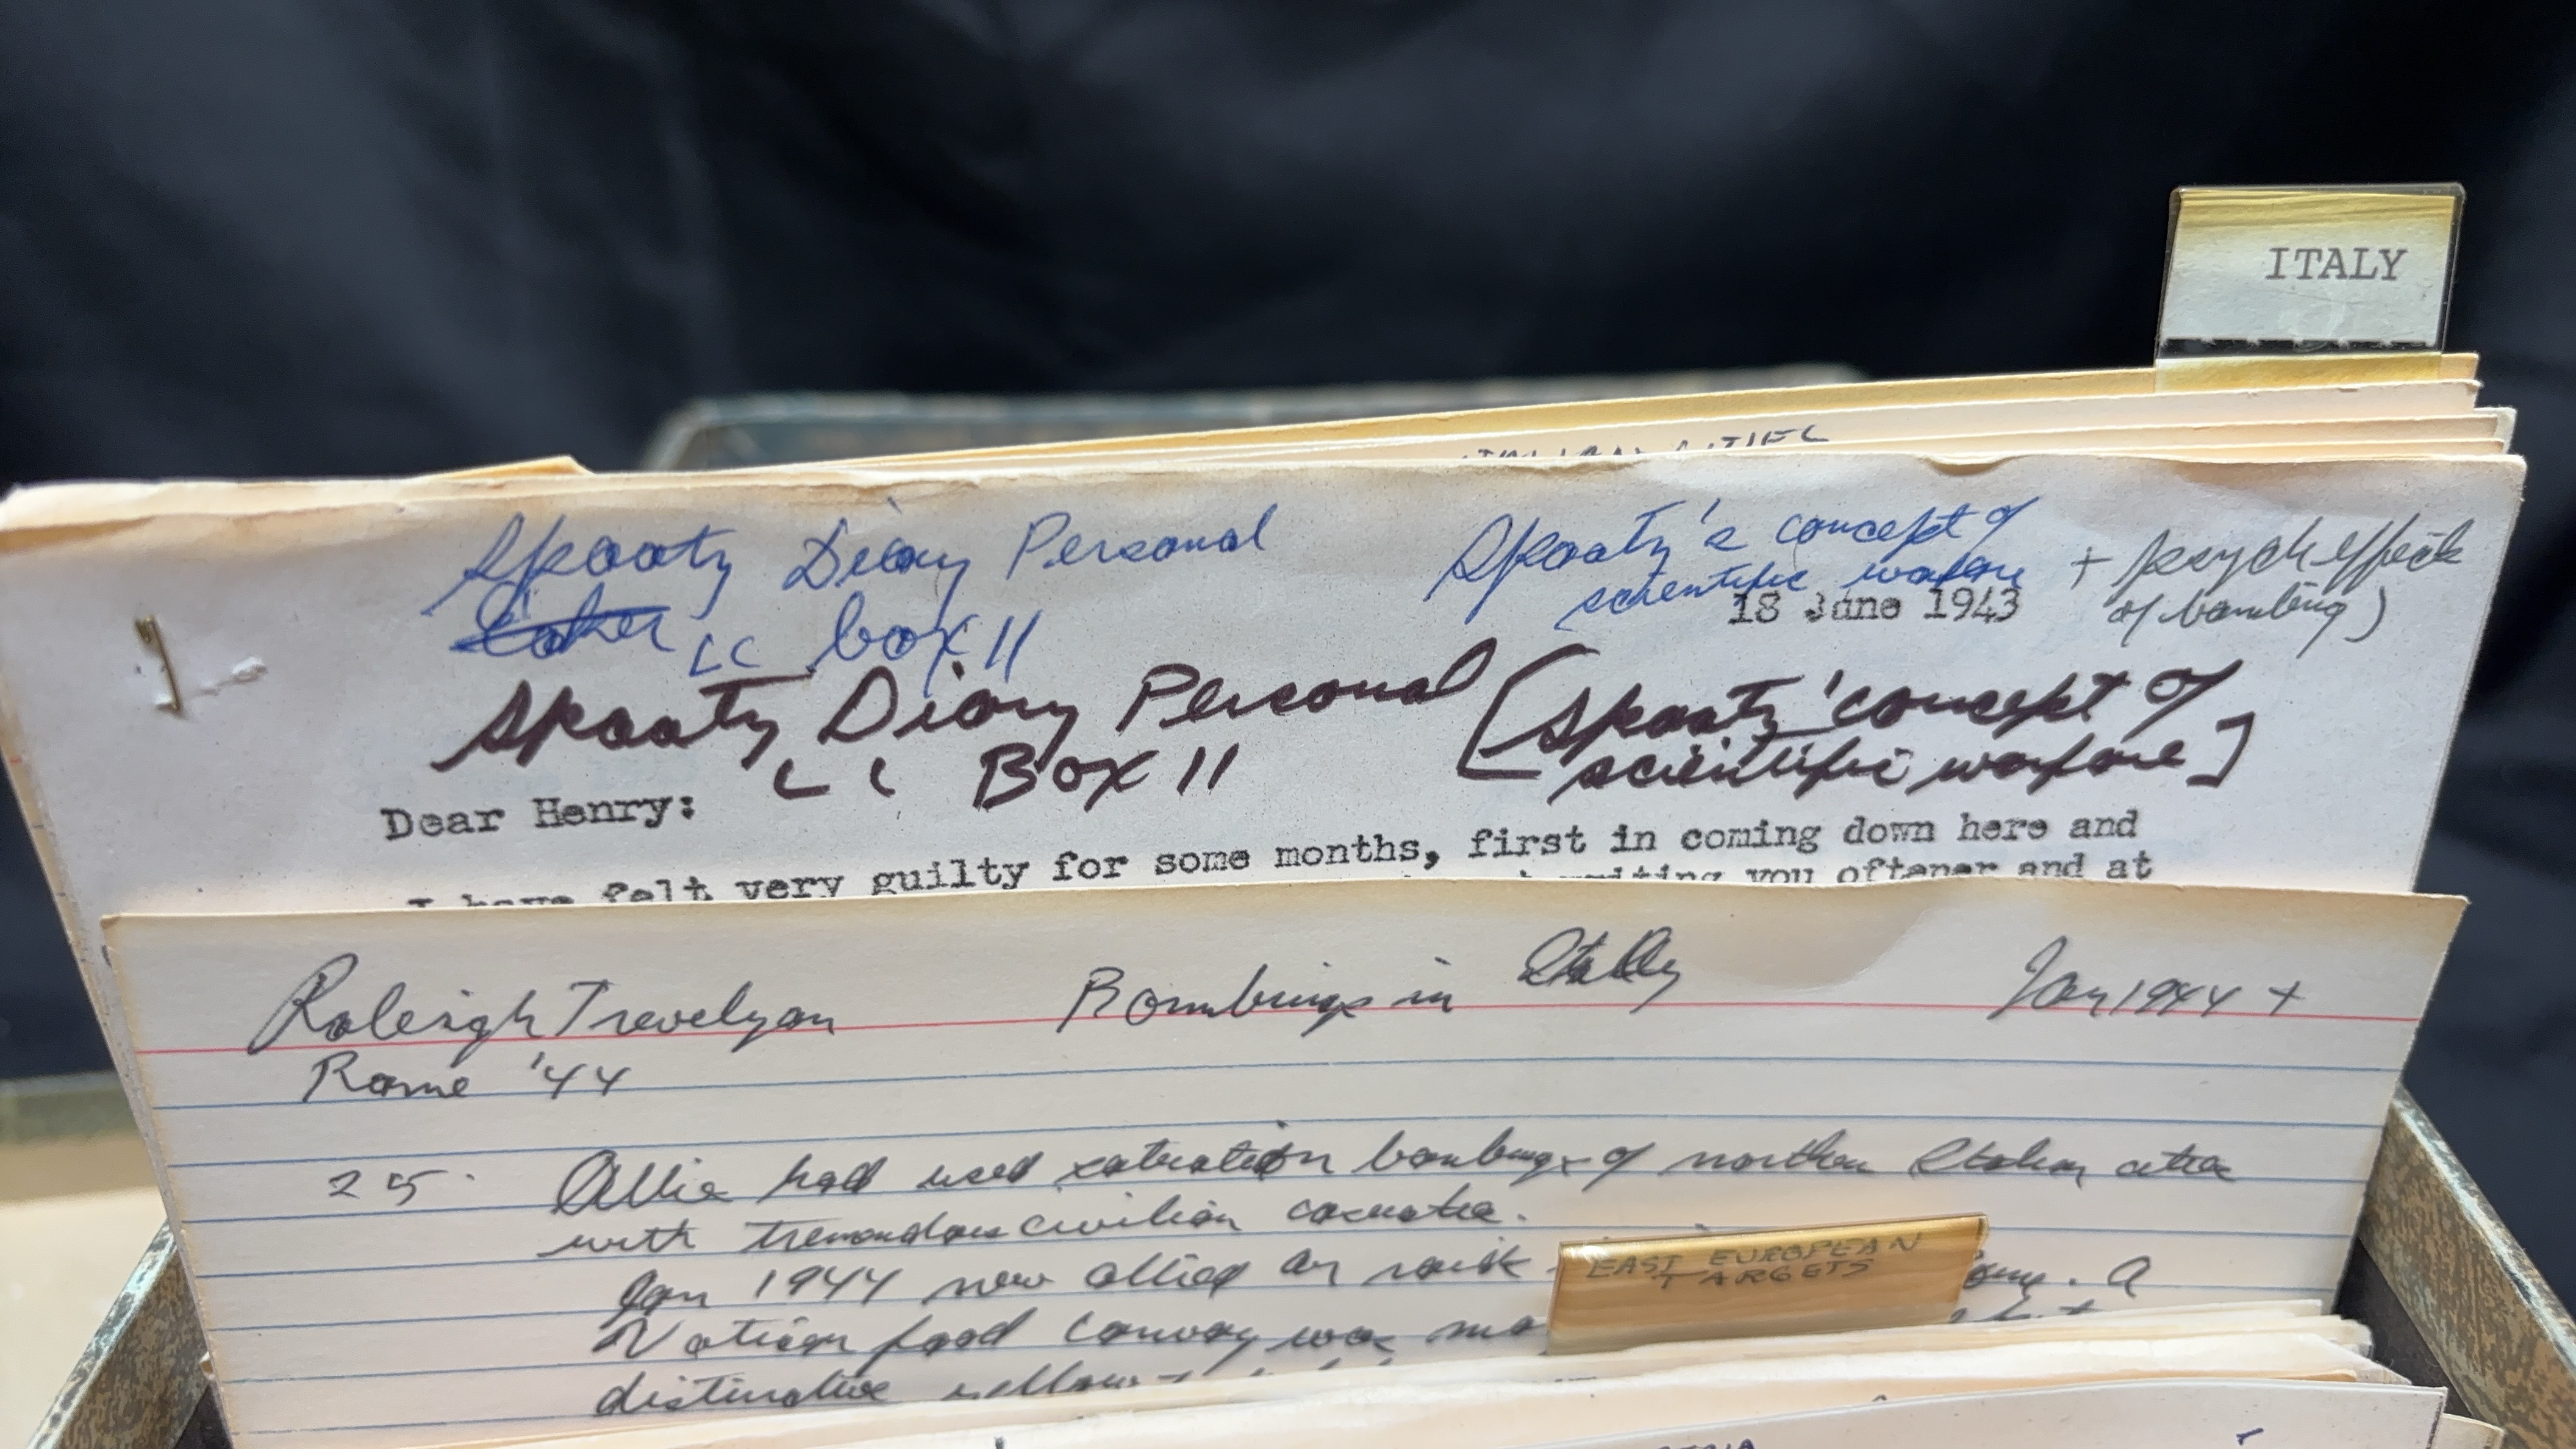 ITALY
Spaatz Diary Personal
LC box 11
Spaatz's concept of
scientific warfare
+ psych effects
of bombing)
18 June 1943
Spaatz Diary Personal
LC Box 11
[Spaatz' concept of
scientific warfare]
Dear Henry:
I have felt very guilty for some months, first in coming down here and
writing you oftener and at
Raleigh Trevelyan Bombings in Italy Jan 1944 +
Rome '44
25. Allies had used saturation bombings of northern Italian cities
with tremendous civilian casualties.
Jan 1944 now allied air raids A
Vatican food convoy was
distinctive yellow
EAST EUROPEAN
TARGETS